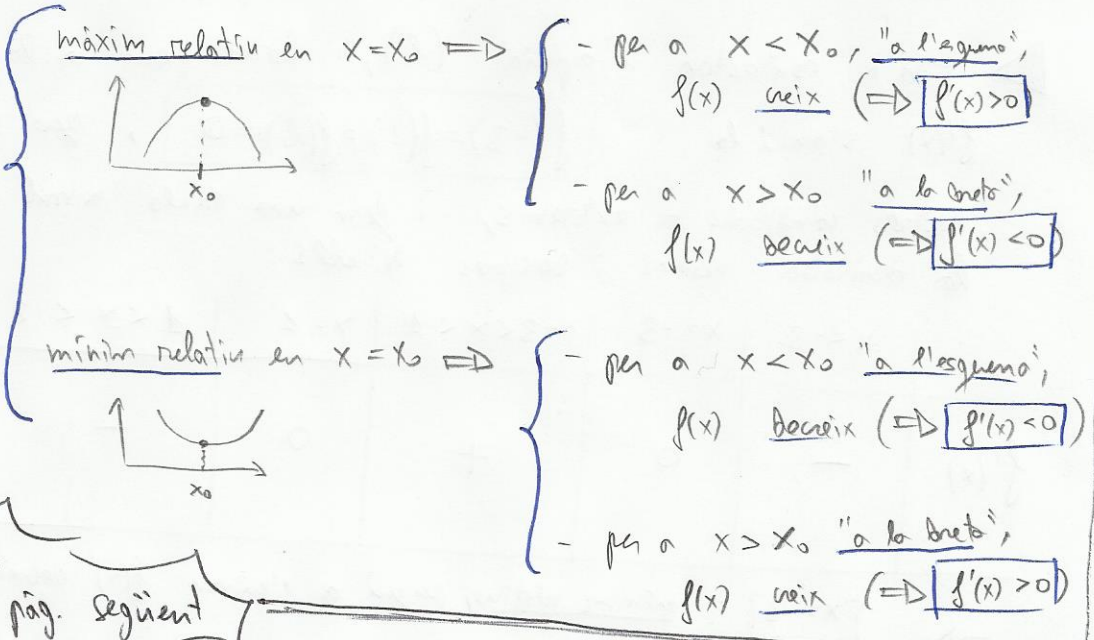 màxim relatiu en x = x₀ ⇒
- per a x < x₀, "a l'esquerra",
f(x) creix (⇒ f'(x)>0)
x₀
- per a x > x₀ "a la dreta",
f(x) decreix (⇒ f'(x) <0)
mínim relatiu en x = x₀ ⇒
- per a x < x₀ "a l'esquerra",
f(x) decreix (⇒ f'(x) <0)
x₀
- per a x > x₀ "a la dreta",
f(x) creix (⇒ f'(x) >0)
pàg. següent